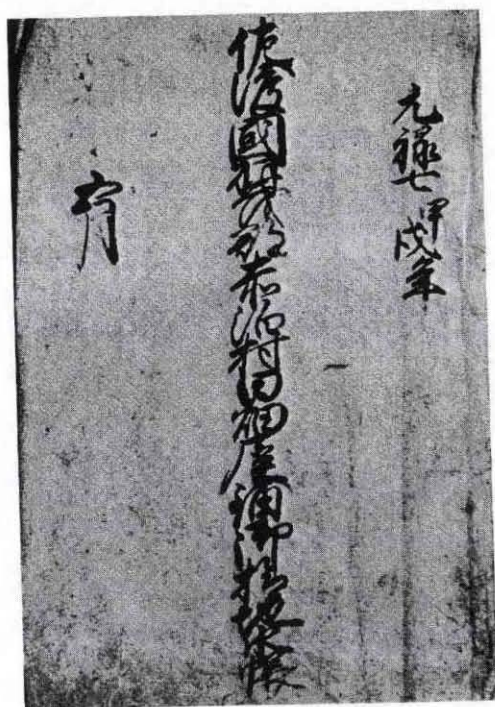 元禄七甲戌年
佐渡國羽茂郡赤泊村田畑屋鋪御検地帳
六月